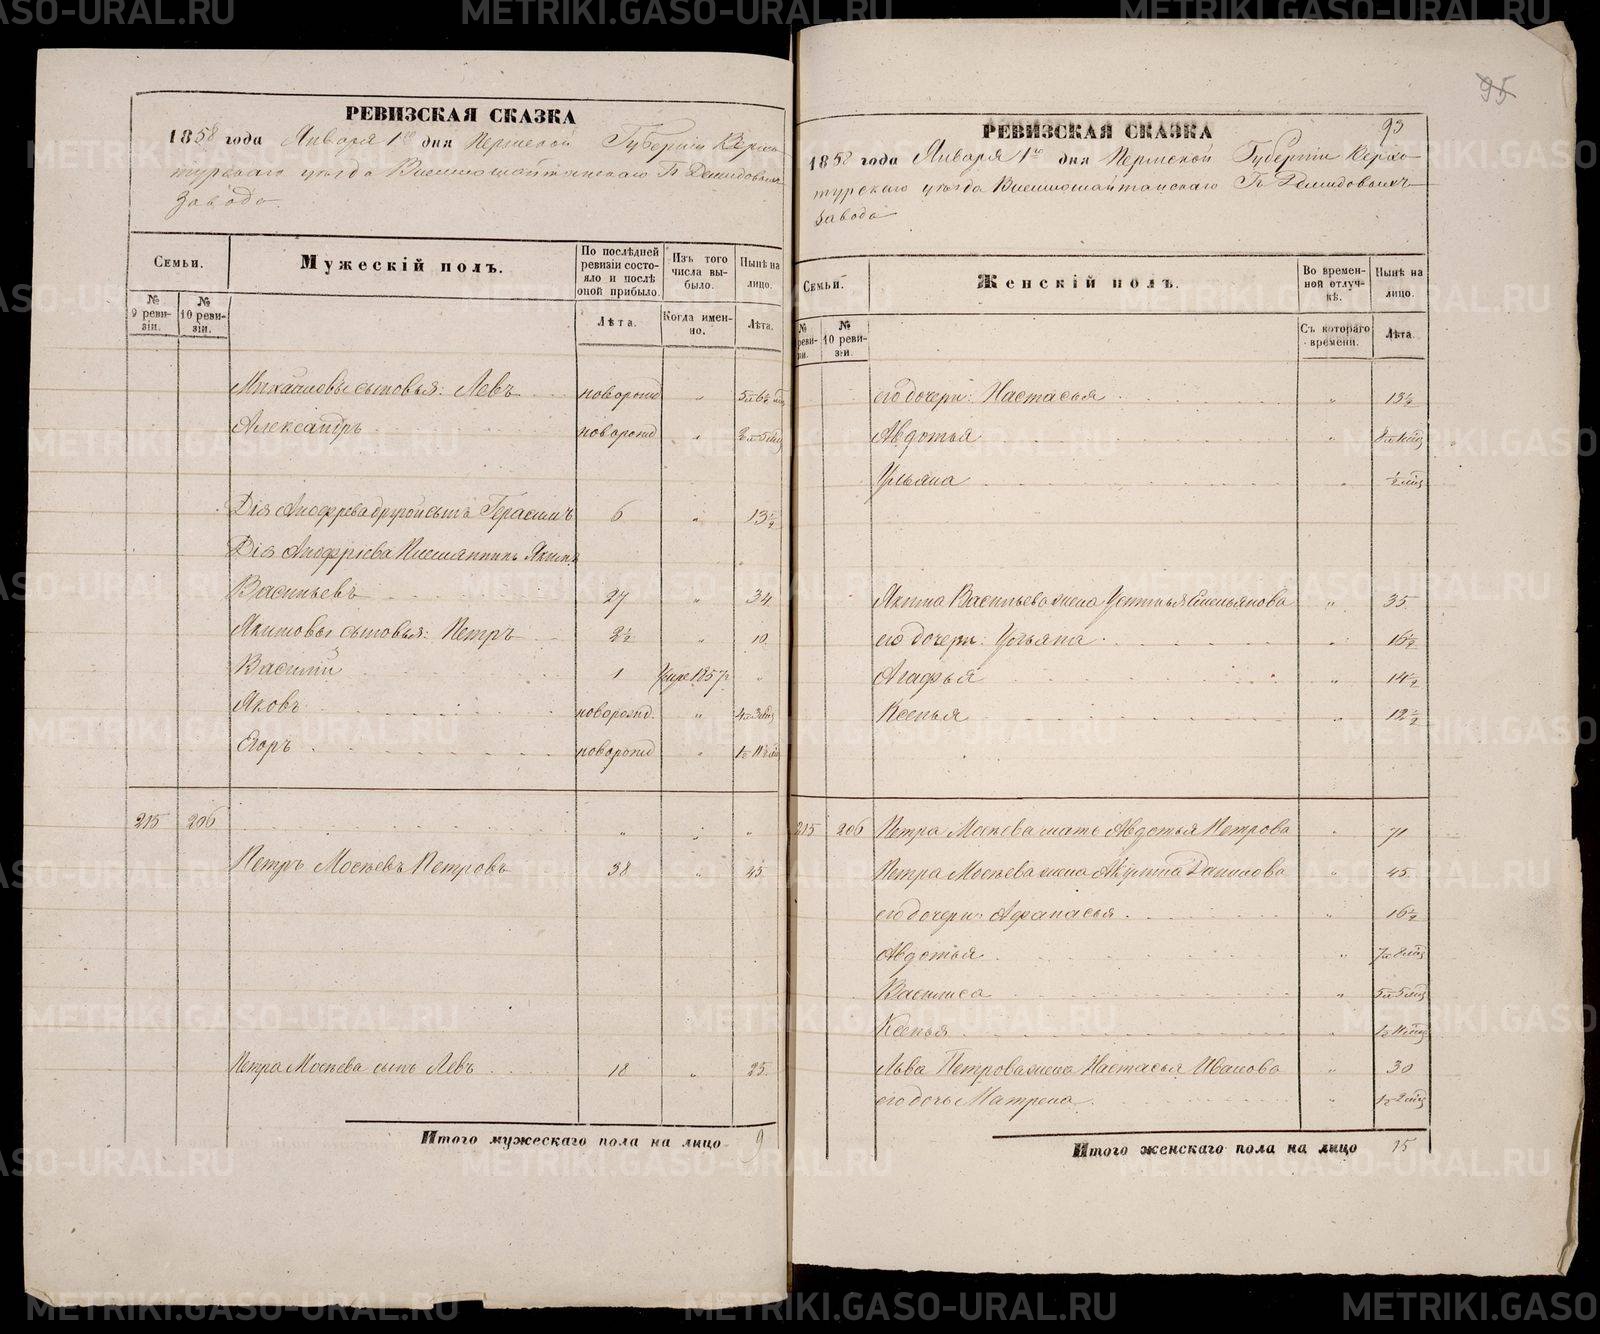 95
93
РЕВИЗСКАЯ СКАЗКА
1858 года Января 1го дня Пермской Губерніи Верхо-
турскаго уѣзда Висимошайтанскаго П Демидовыхъ
Завода.
Семьи.
Мужескій полъ.
По послѣдней ревизіи состо-
яло и послѣ оной прибыло.
Изъ того числа вы-
было.
Нынѣ на лицо.
№ 9 реви-
зіи.
№ 10 реви-
зіи.
Лѣта.
Когда имен-
но.
Лѣта.
Михайловы сыновья: Левъ новорожд „
Александръ новорожд „
Дія Анофріева другой сынъ Герасимъ 6 „ 13½
Дія Анофріева Племянникъ Якимъ
Васильевъ 27 „ 34
Якимовы сыновья: Петръ 2½ „ 10
Василій 1 Умре 1857 „
Яковъ новорожд. „ 4 л 3 мѣц
Егоръ новорожд „
215 206 „ „ „
Петръ Мосѣевъ Петровъ 38 „ 45
Петра Мосѣева сынъ Левъ 18 „ 25
Итого мужескаго пола на лицо 9
РЕВИЗСКАЯ СКАЗКА
1858 года Января 1го дня Пермской Губерніи Верхо-
турскаго уѣзда Висимошайтанскаго П Демидовыхъ
Завода
Семьи.
Женскій полъ.
Во времен-
ной отлуч-
кѣ.
Нынѣ на лицо.
№ реви-
зи.
№ 10 реви-
зіи.
Съ котораго времени.
Лѣта.
его дочери: Настасья „ 13½
Авдотья „
Ульяна „ ½ мѣц
Якима Васильева жена Устинья Емельянова „ 35
его дочери: Ульяна „ 16½
Агафья „ 14½
Ксенья „ 12½
215 206 Петра Мосѣева мать Авдотья Петрова „ 71
Петра Мосѣева жена Акулина Данилова „ 45
его дочери: Афанасья „ 16½
Авдотья „ 7 л 8 мѣц
Василиса „ 5 л 5 мѣц
Ксенья „ 1 г 11 мѣц
Льва Петрова жена Настасья Иванова „ 30
его дочь Матрена „ 1 г 2 мѣц
Итого женскаго пола на лицо 15
METRIKI.GASO-URAL.RU